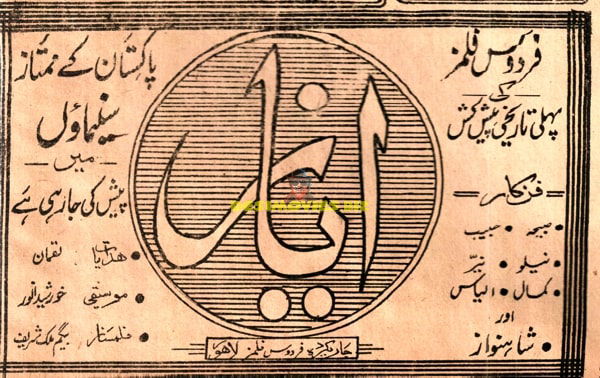 فردوس فلمز
کی
پہلی تاریخی پیش کش
فنکار
صبیحہ حبیب
نیلو نیّر
کمال الیاس
اور
شاہنواز
ایاز
جاری کردہ فردوس فلمز لاہور
پاکستان کے ممتاز
سینماؤں
میں
پیش کی جا رہی ہے
ھدایات لقمان
موسیقی خورشید انور
فلمساز بیگم ملک شریف